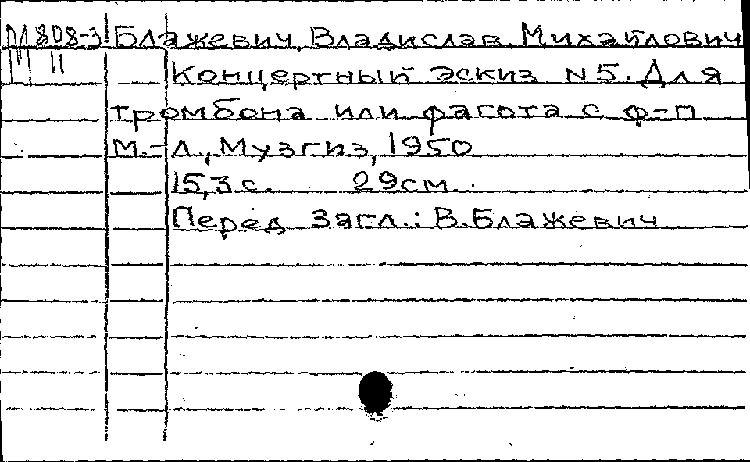 М808-3 Блажевич, Владислав Михайлович
М II Концертный эскиз N5. Для
тромбона или фагота с ф-п
М.-Л., Музгиз, 1950
15,3с. 29см.
Перед загл.: В.Блажевич